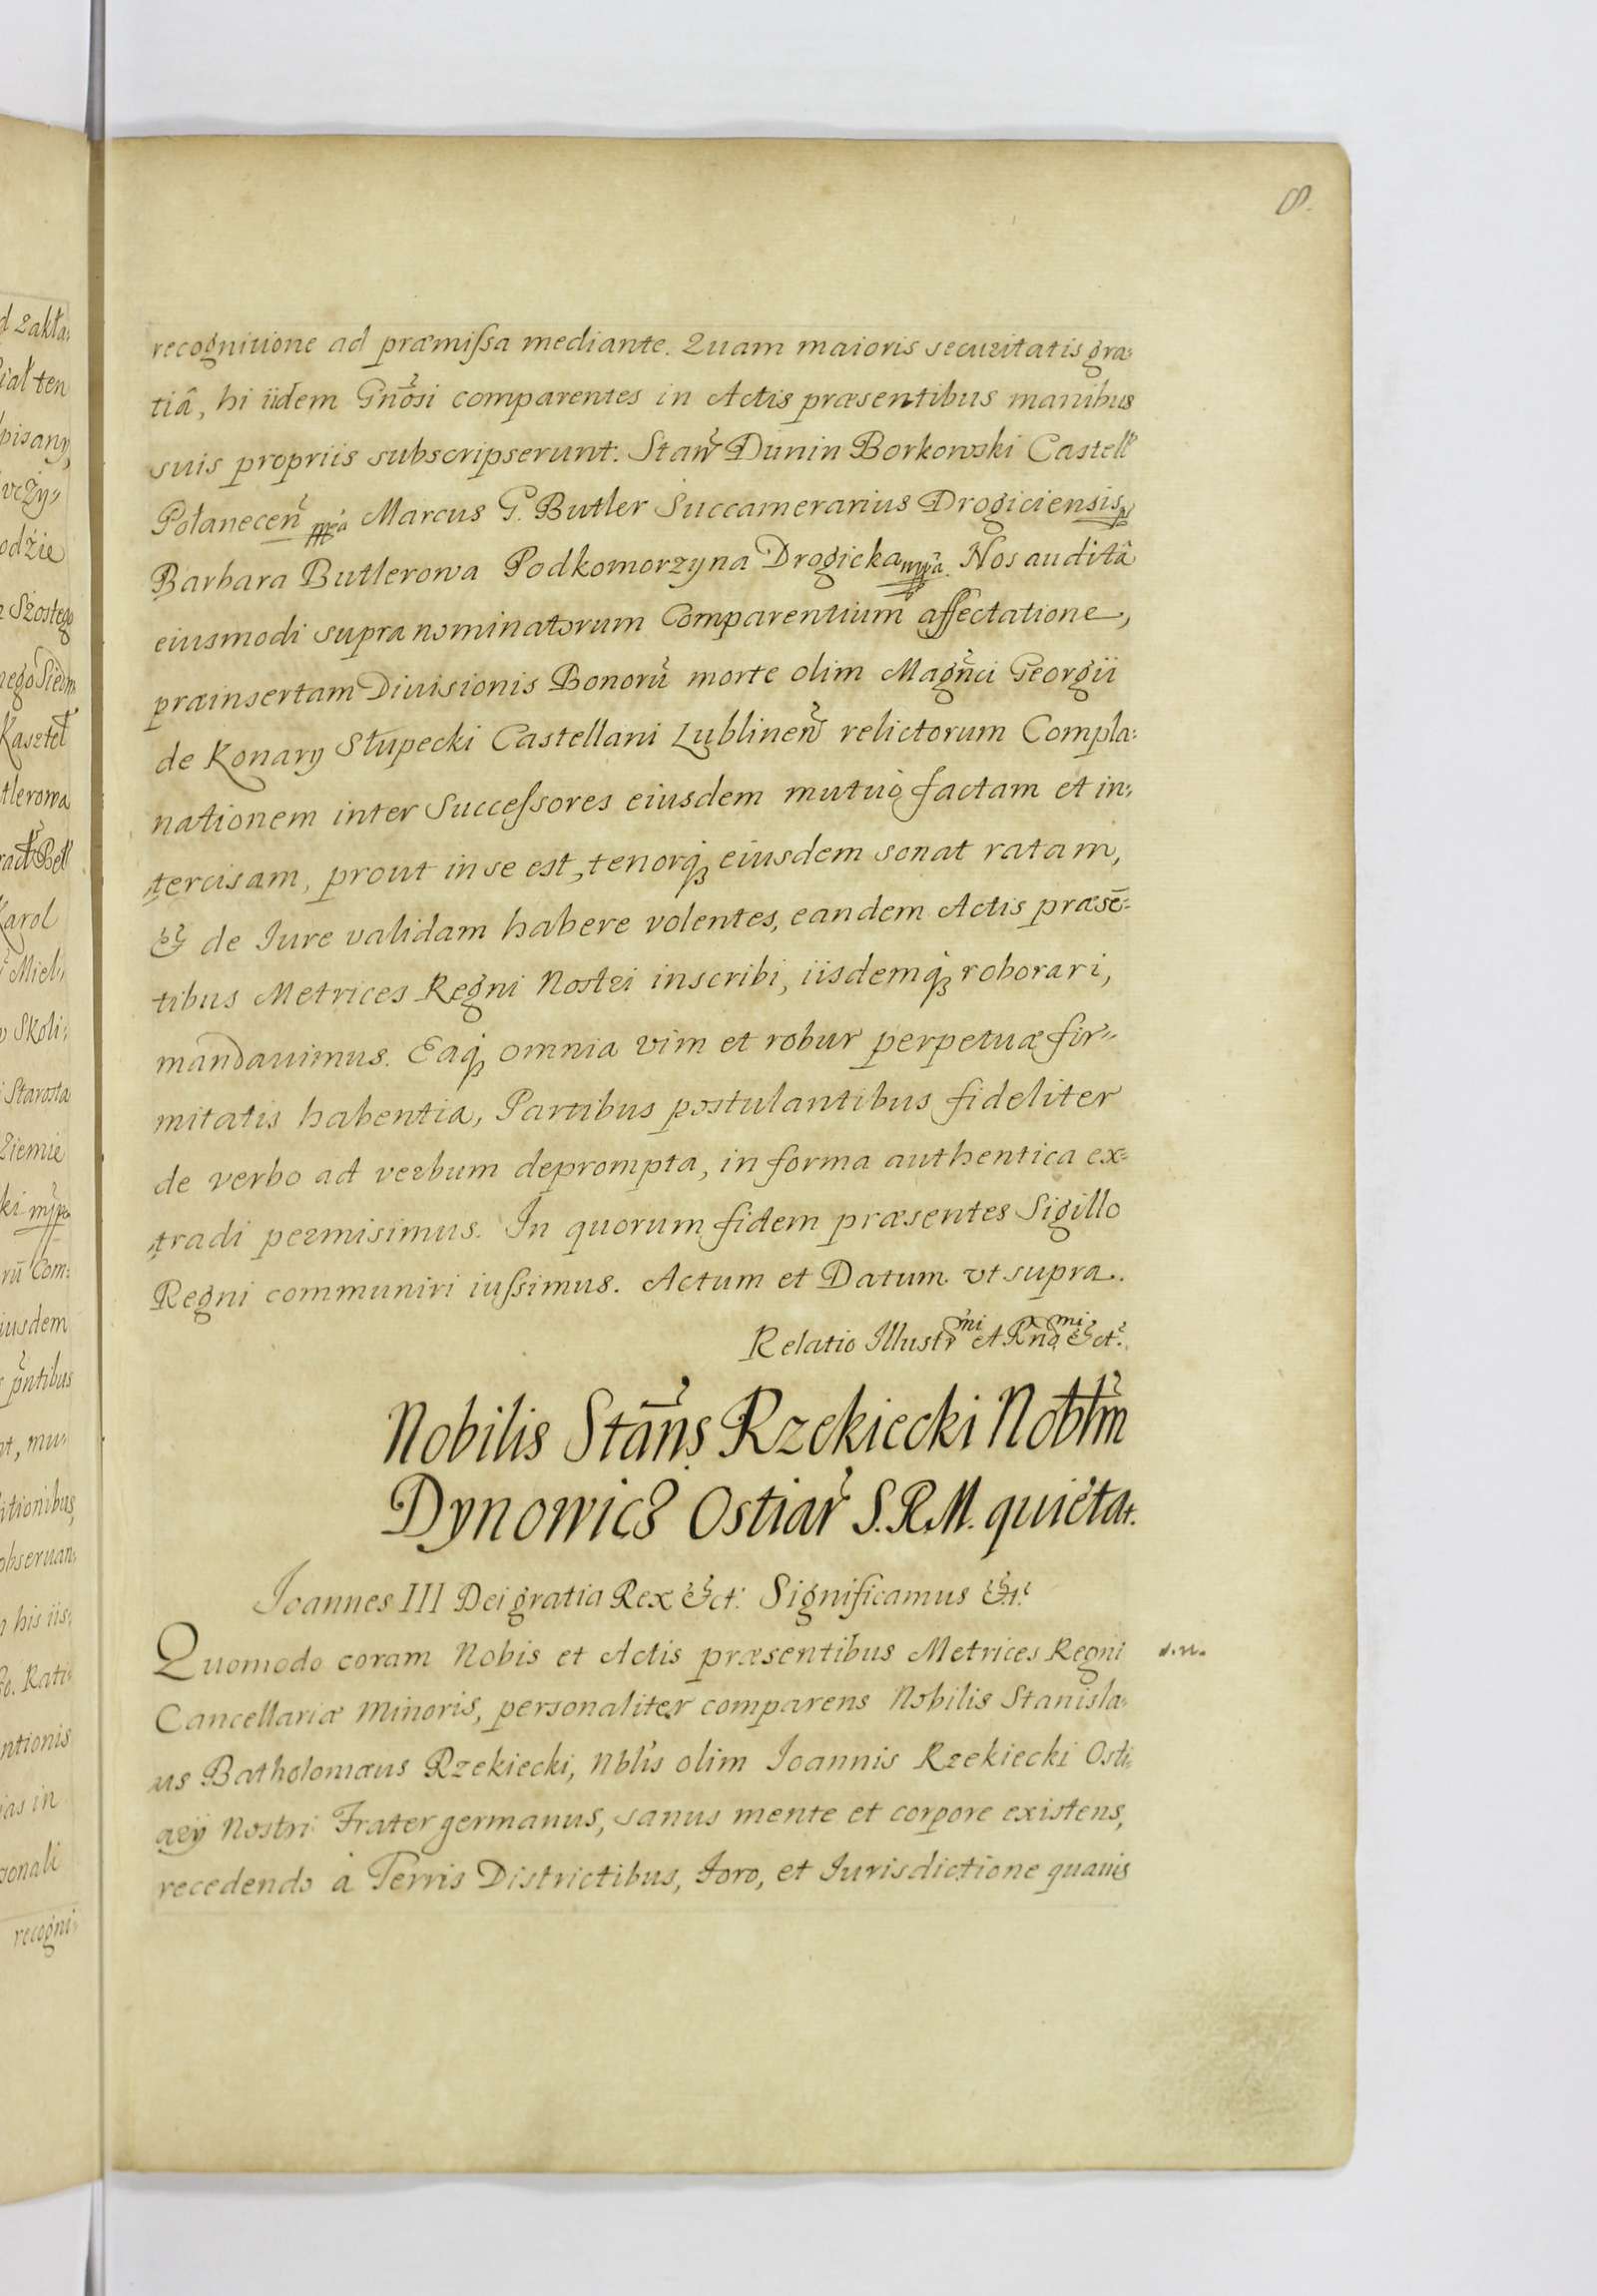 8.
recognitione ad præmissa mediante. Quam maioris securitatis gra:
tiâ, hi iidem Gnosi comparentes in Actis præsentibus manibus
suis propriis subscripserunt. Stan Dunin Borkowski Castell
Połanecen mpa Marcus G. Butler Succamerarius Drogiciensis
Barbara Butlerowa Podkomorzyna Drogicka mpa. Nos auditâ
eiusmodi supra nominatorum Comparentium affectatione,
præinsertam Diuisionis Bonorũ morte olim Magnci Georgii
de Konary Słupecki Castellani Lublinen relictorum Compla:
nationem inter Successores eiusdem mutuò factam et in:
tercisam, prout in se est, tenorq; eiusdem sonat ratam,
& de Iure validam habere volentes, eandem Actis præsē:
tibus Metrices Regni Nostri inscribi, iisdemq; roborari,
mandauimus. Eaq; omnia vim et robur perpetuæ fir:
mitatis habentia, Partibus postulantibus fideliter
de verbo ad verbum deprompta, in forma authentica ex:
tradi permisimus. In quorum fidem præsentes Sigillo
Regni communiri iussimus. Actum et Datum vt supra.
Relatio Illustrmi et Rndmi &ct.
Nobilis Stans Rzekiecki Nobłm
Dynowicz Ostiar S.R.M. quietat.
Ioannes III Dei gratia Rex &ct: Significamus &t:
Quomodo coram Nobis et Actis præsentibus Metrices Regni
Cancellariæ Minoris, personaliter comparens Nobilis Stanisla:
us Batholomæus Rzekiecki, Nblis olim Ioannis Rzekiecki Osti:
arÿ Nostri Frater germanus, sanus mente et corpore existens,
recedendo à Terris Districtibus, foro, et Iurisdictione quauis